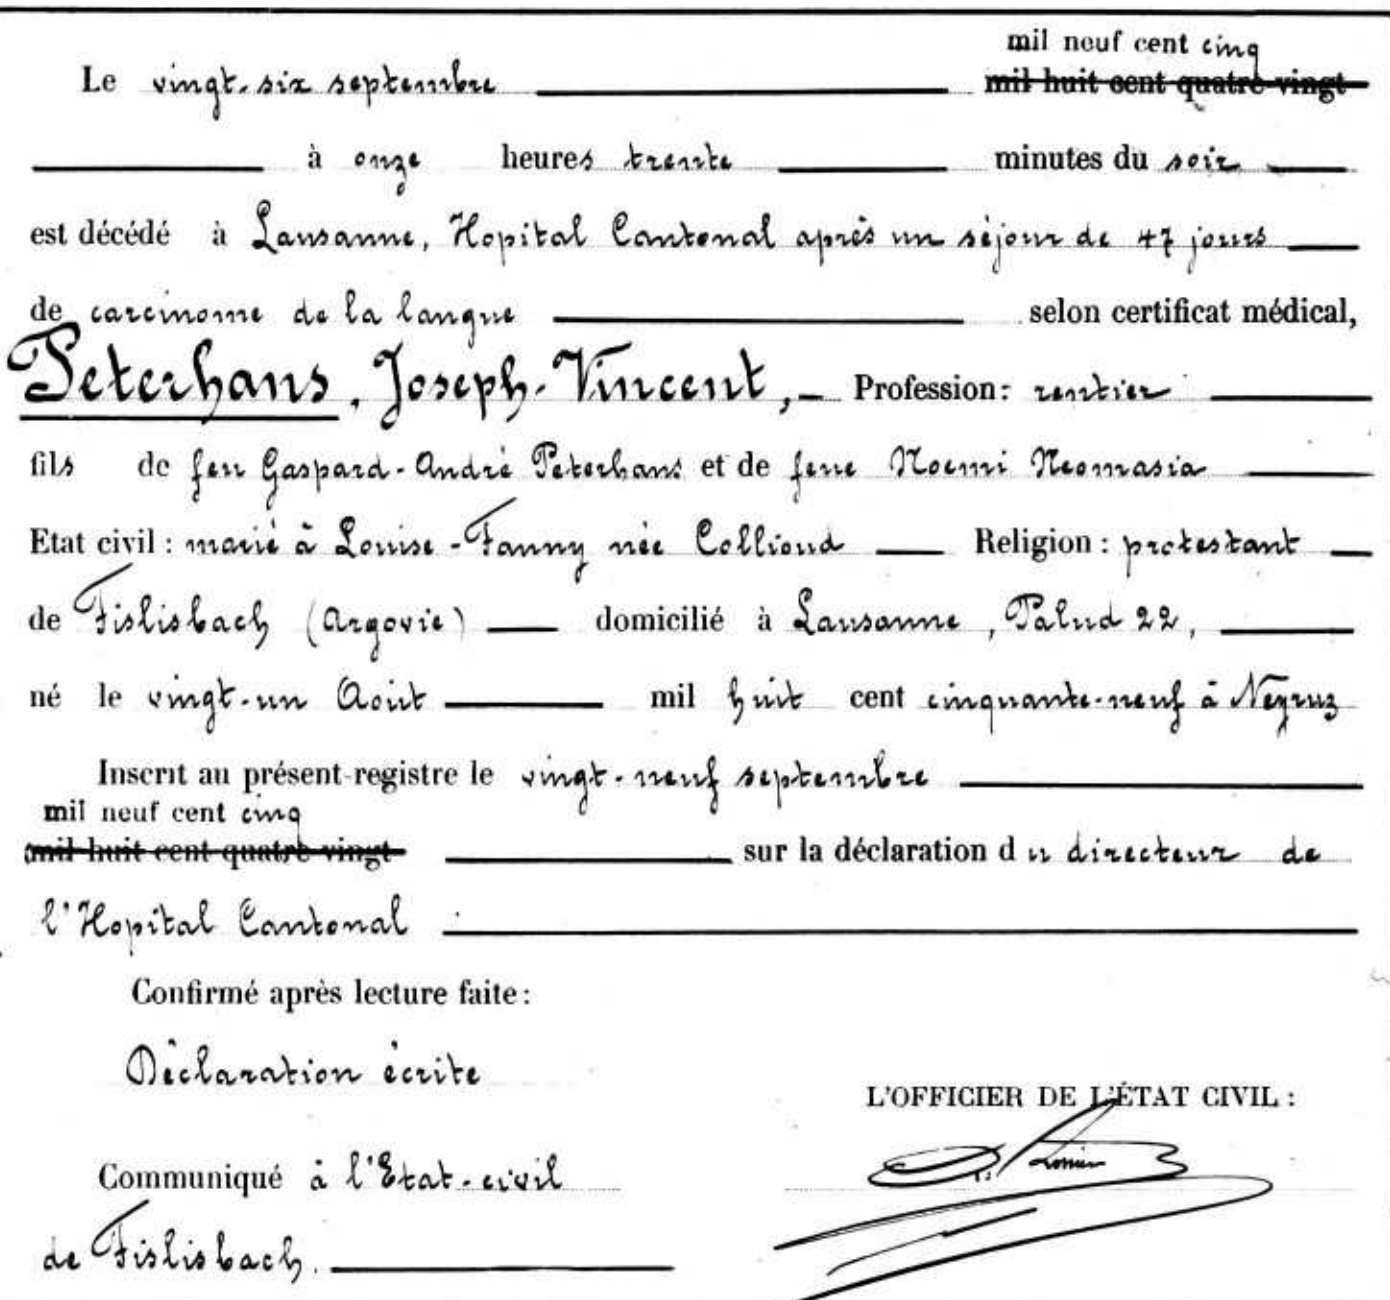 mil neuf cent cinq
Le vingt-six septembre mil huit cent quatre-vingt
à onze heures trente minutes du soir
est décédé à Lausanne, Hopital Cantonal après un séjour de 47 jours
de carcinome de la langue selon certificat médical,
Peterhans, Joseph-Vincent, Profession: rentier
fils de feu Gaspard-André Peterhans et de feue Noemi Neomasia
Etat civil : marié à Louise-Fanny née Collioud Religion : protestant
de Fislisbach (Argovie) domicilié à Lausanne, Palud 22,
né le vingt-un Août mil huit cent cinquante-neuf à Neyruz
Inscrit au présent registre le vingt-neuf septembre
mil neuf cent cinq
mil huit cent quatre-vingt sur la déclaration du directeur de
l'Hopital Cantonal
Confirmé après lecture faite :
Déclaration écrite
L'OFFICIER DE L'ÉTAT CIVIL :
Communiqué à l'Etat-civil
de Fislisbach.